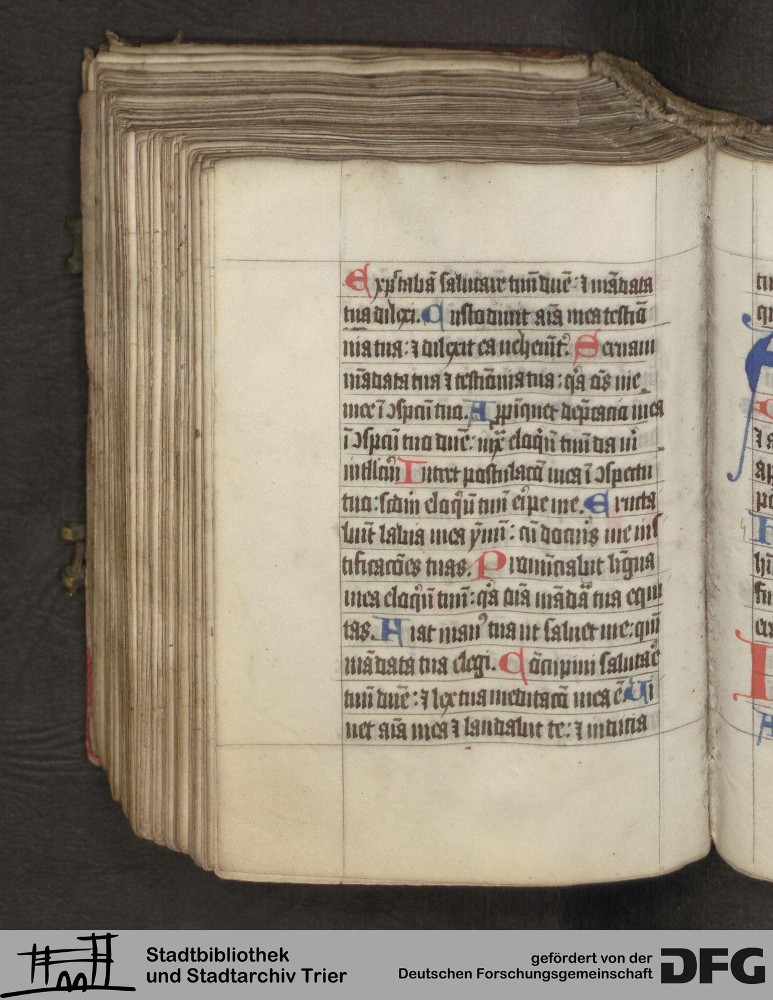 Expectabā salutare tuū dūe : ⁊ mādata
tua dilexi. Custodiuit aīa mea testiō
nia tua : ⁊ dilexit ea uehemēt᷒. Seruaui
mādata tua ⁊ testiōnia tua : qͣ oēs uie
mee ī ↄspcū tuo. Appīquet dep̄catio mea
ī ↄspcū tuo dūe : iux̄ eloqūi tuū da m̄
intllcm̄ Intret postulacō mea ī ↄspectu
tuo : scdm̄ eloqūi tuū eripe me. Eructa
būt labia mea ymū : cū docueris me ius
tificacōes tuas. Pronūciabit līgua
mea eloqūi tuū : qͣ oīa mādāͣ tua equi
tas. Fiat man᷒ tua ut saluet me : qm̄
mādata tua elegi. Cōcupiui salutaͤ
tuū dūe : ⁊ lex tua meditacō mea ē Ui
uet aīa mea ⁊ laudabit te : ⁊ iudicia
Stadtbibliothek
und Stadtarchiv Trier
gefördert von der
Deutschen Forschungsgemeinschaft
DFG